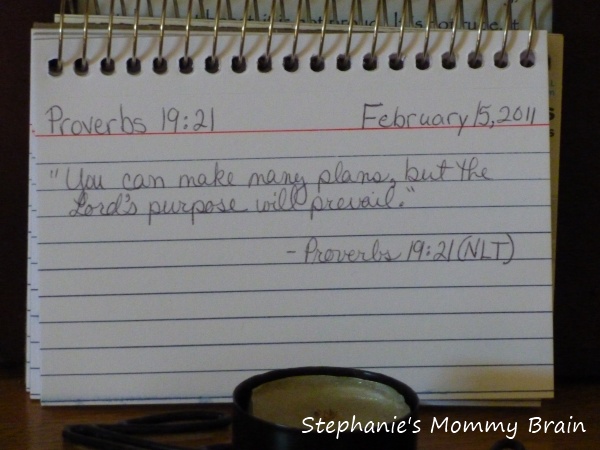 Proverbs 19:21 February 15, 2011
"You can make many plans, but the
Lord's purpose will prevail."
- Proverbs 19:21 (NLT)
Stephanie's Mommy Brain